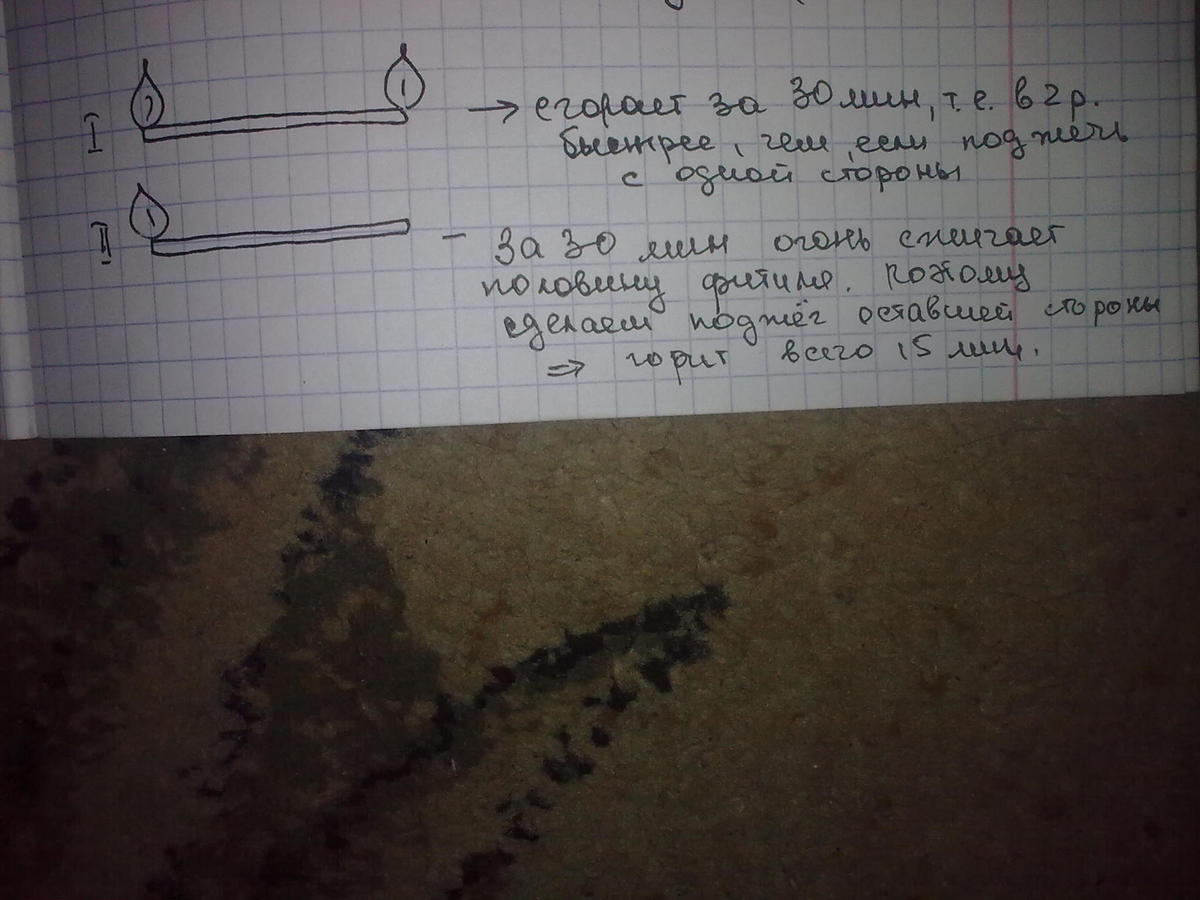 I
2
1
→ сгорает за 30 мин, т.е. в 2 р.
быстрее, чем если поджечь
с одной стороны
II
1
- За 30 мин огонь сжигает
половину фитиля. Поэтому
сделаем поджёг оставшей стороны
⇒ горит всего 15 мин.